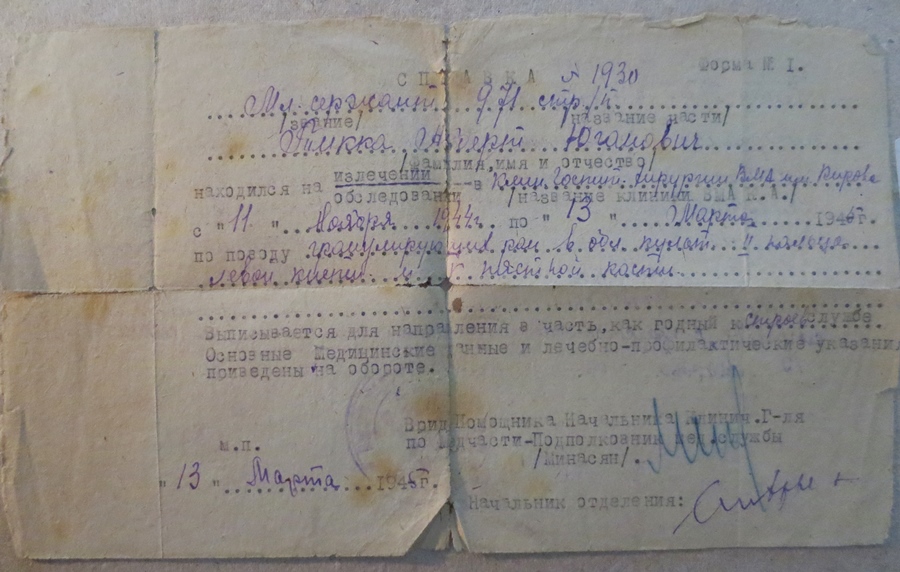 Форма № I.
СПРАВКА № 1930
Мл. сержант 971 стр. п.
/звание/ /название части/
Юганович
/фамилия, имя и отчество/
находился на излечении в Клин. Госпит. Хирургии ВМА им. Кирова
обследовании /название клиники ВМА К.А./
с "11" Ноября 1944г. по "13" Марта 1945г.
по поводу гранулирующих ран в обл. II пальца
левой кисти и пястной кости
Выписывается для направления в часть, как годный к строев. службе
Основные Медицинские данные и лечебно-профилактические указания
приведены на обороте.
Врид. Помощника Начальника Клинич. Г-ля
м.п. по Медчасти-Подполковник мед. службы
/Минасян/
"13" Марта 1945г.
Начальник отделения: